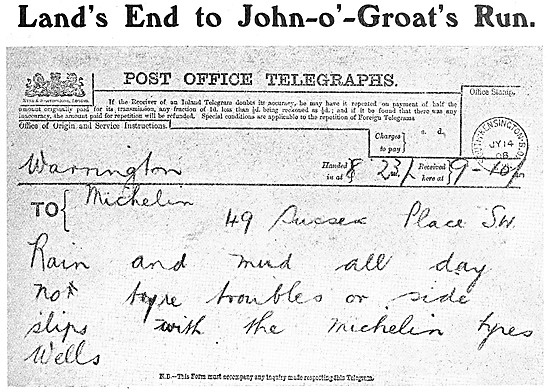 Land's End to John-o'-Groat's Run.
POST OFFICE TELEGRAPHS.
If the Receiver of an Inland Telegram doubts its accuracy, he may have it repeated on payment of half the
amount originally paid for its transmission, any fraction of 1d. less than ½d. being reckoned as ½d.; and if it be found that there was any
inaccuracy, the amount paid for repetition will be refunded. Special conditions are applicable to the repetition of Foreign Telegrams
Office Stamp.
Office of Origin and Service Instructions.
Charges to pay
s. d.
SOUTH KENSINGTON
JY 14
08
Warrington
Handed in at 8 23 Received here at 9-10
TO Michelin
49 Sussex Place SW.
Rain and mud all day
not tyre troubles or side
slips with the Michelin tyres
Wells
N.B.—This Form must accompany any inquiry made respecting this Telegram.